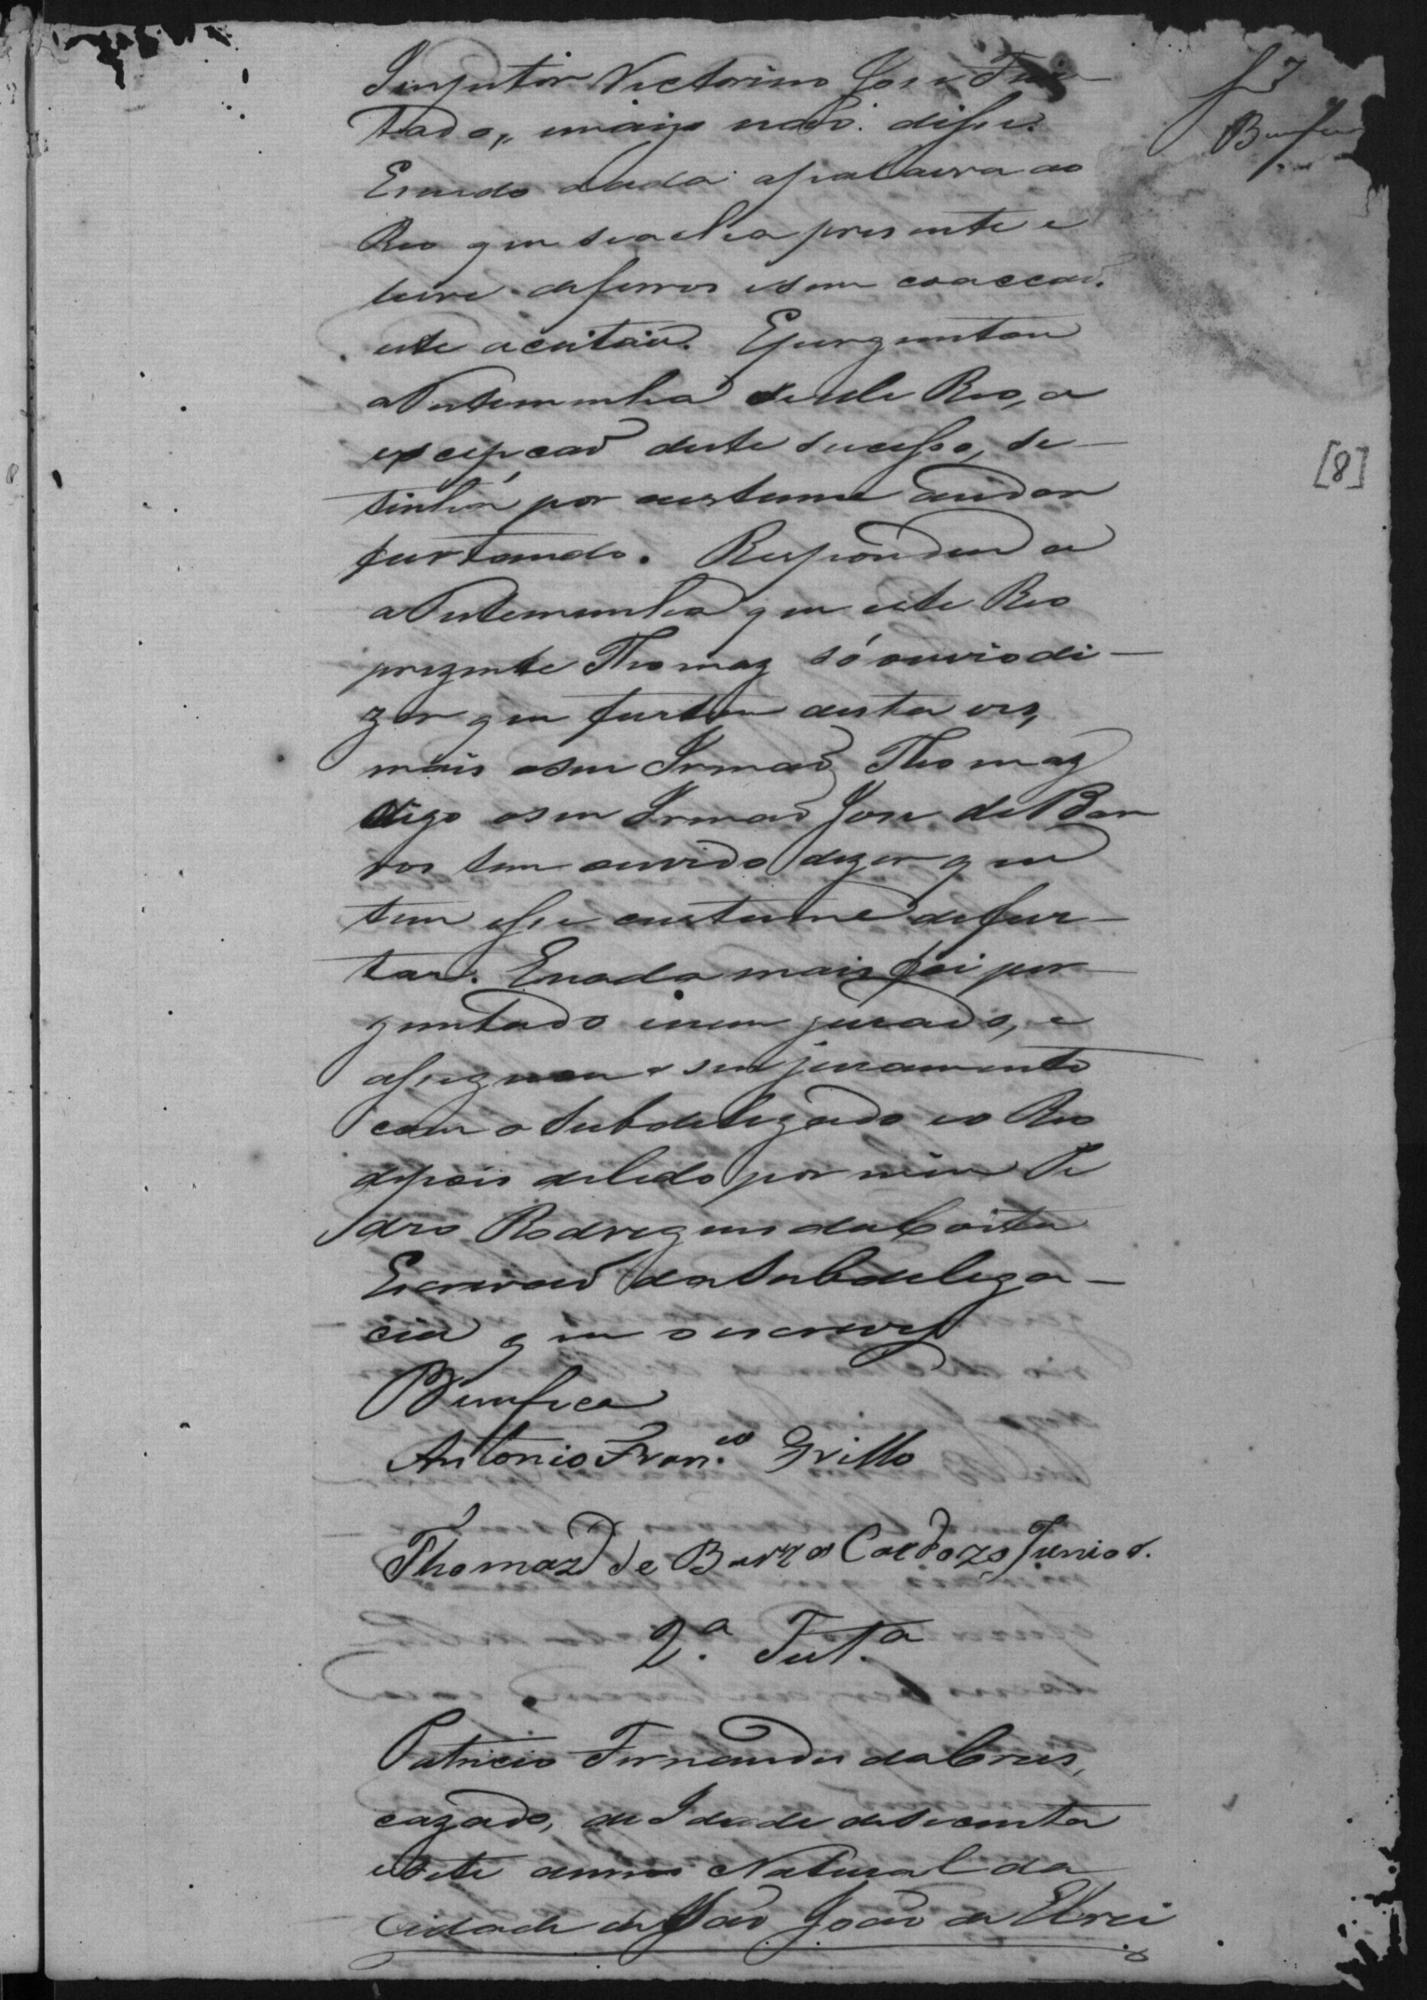 f 7
Benfica
Inspector Victorino Jose Fur
tado, emais não disse.
Esendo dada apalavra ao
Reo que seacha presente e
livre deferros esem coacçaõ.
este aceitou. Eperguntou
aTestemunha sesele Reo, a
excepçaõ deste sucesso, se
tinha por custume andar
furtando. Respondeu a
aTestemunha que este Reo
prezente Thomaz só ouvio di
zer que furtou desta ves,
mais oseu Irmaõ Thomaz
digo oseu Irmaõ Jose de Bar
ros tem ouvido dizer que
tem esse custume defur
tar. Enada mais foi per
guntado enem jurado, e
assignou o seu juramento
com o Subdelegado eo Reo
depois delido por mim Pe
dro Rodrigues da Costa
Escrivaõ da Subdelega
cia que oescrevy
Benfica
Antonio Fran.co Grillo
Thomaz de Barros Cardozo Junior.
2.a Test.a
Patricio Fernandes da Crus,
cazado, de Idade desecenta
esete annos Natural da
Cidade de Saõ Joaõ de ElRei
[8]